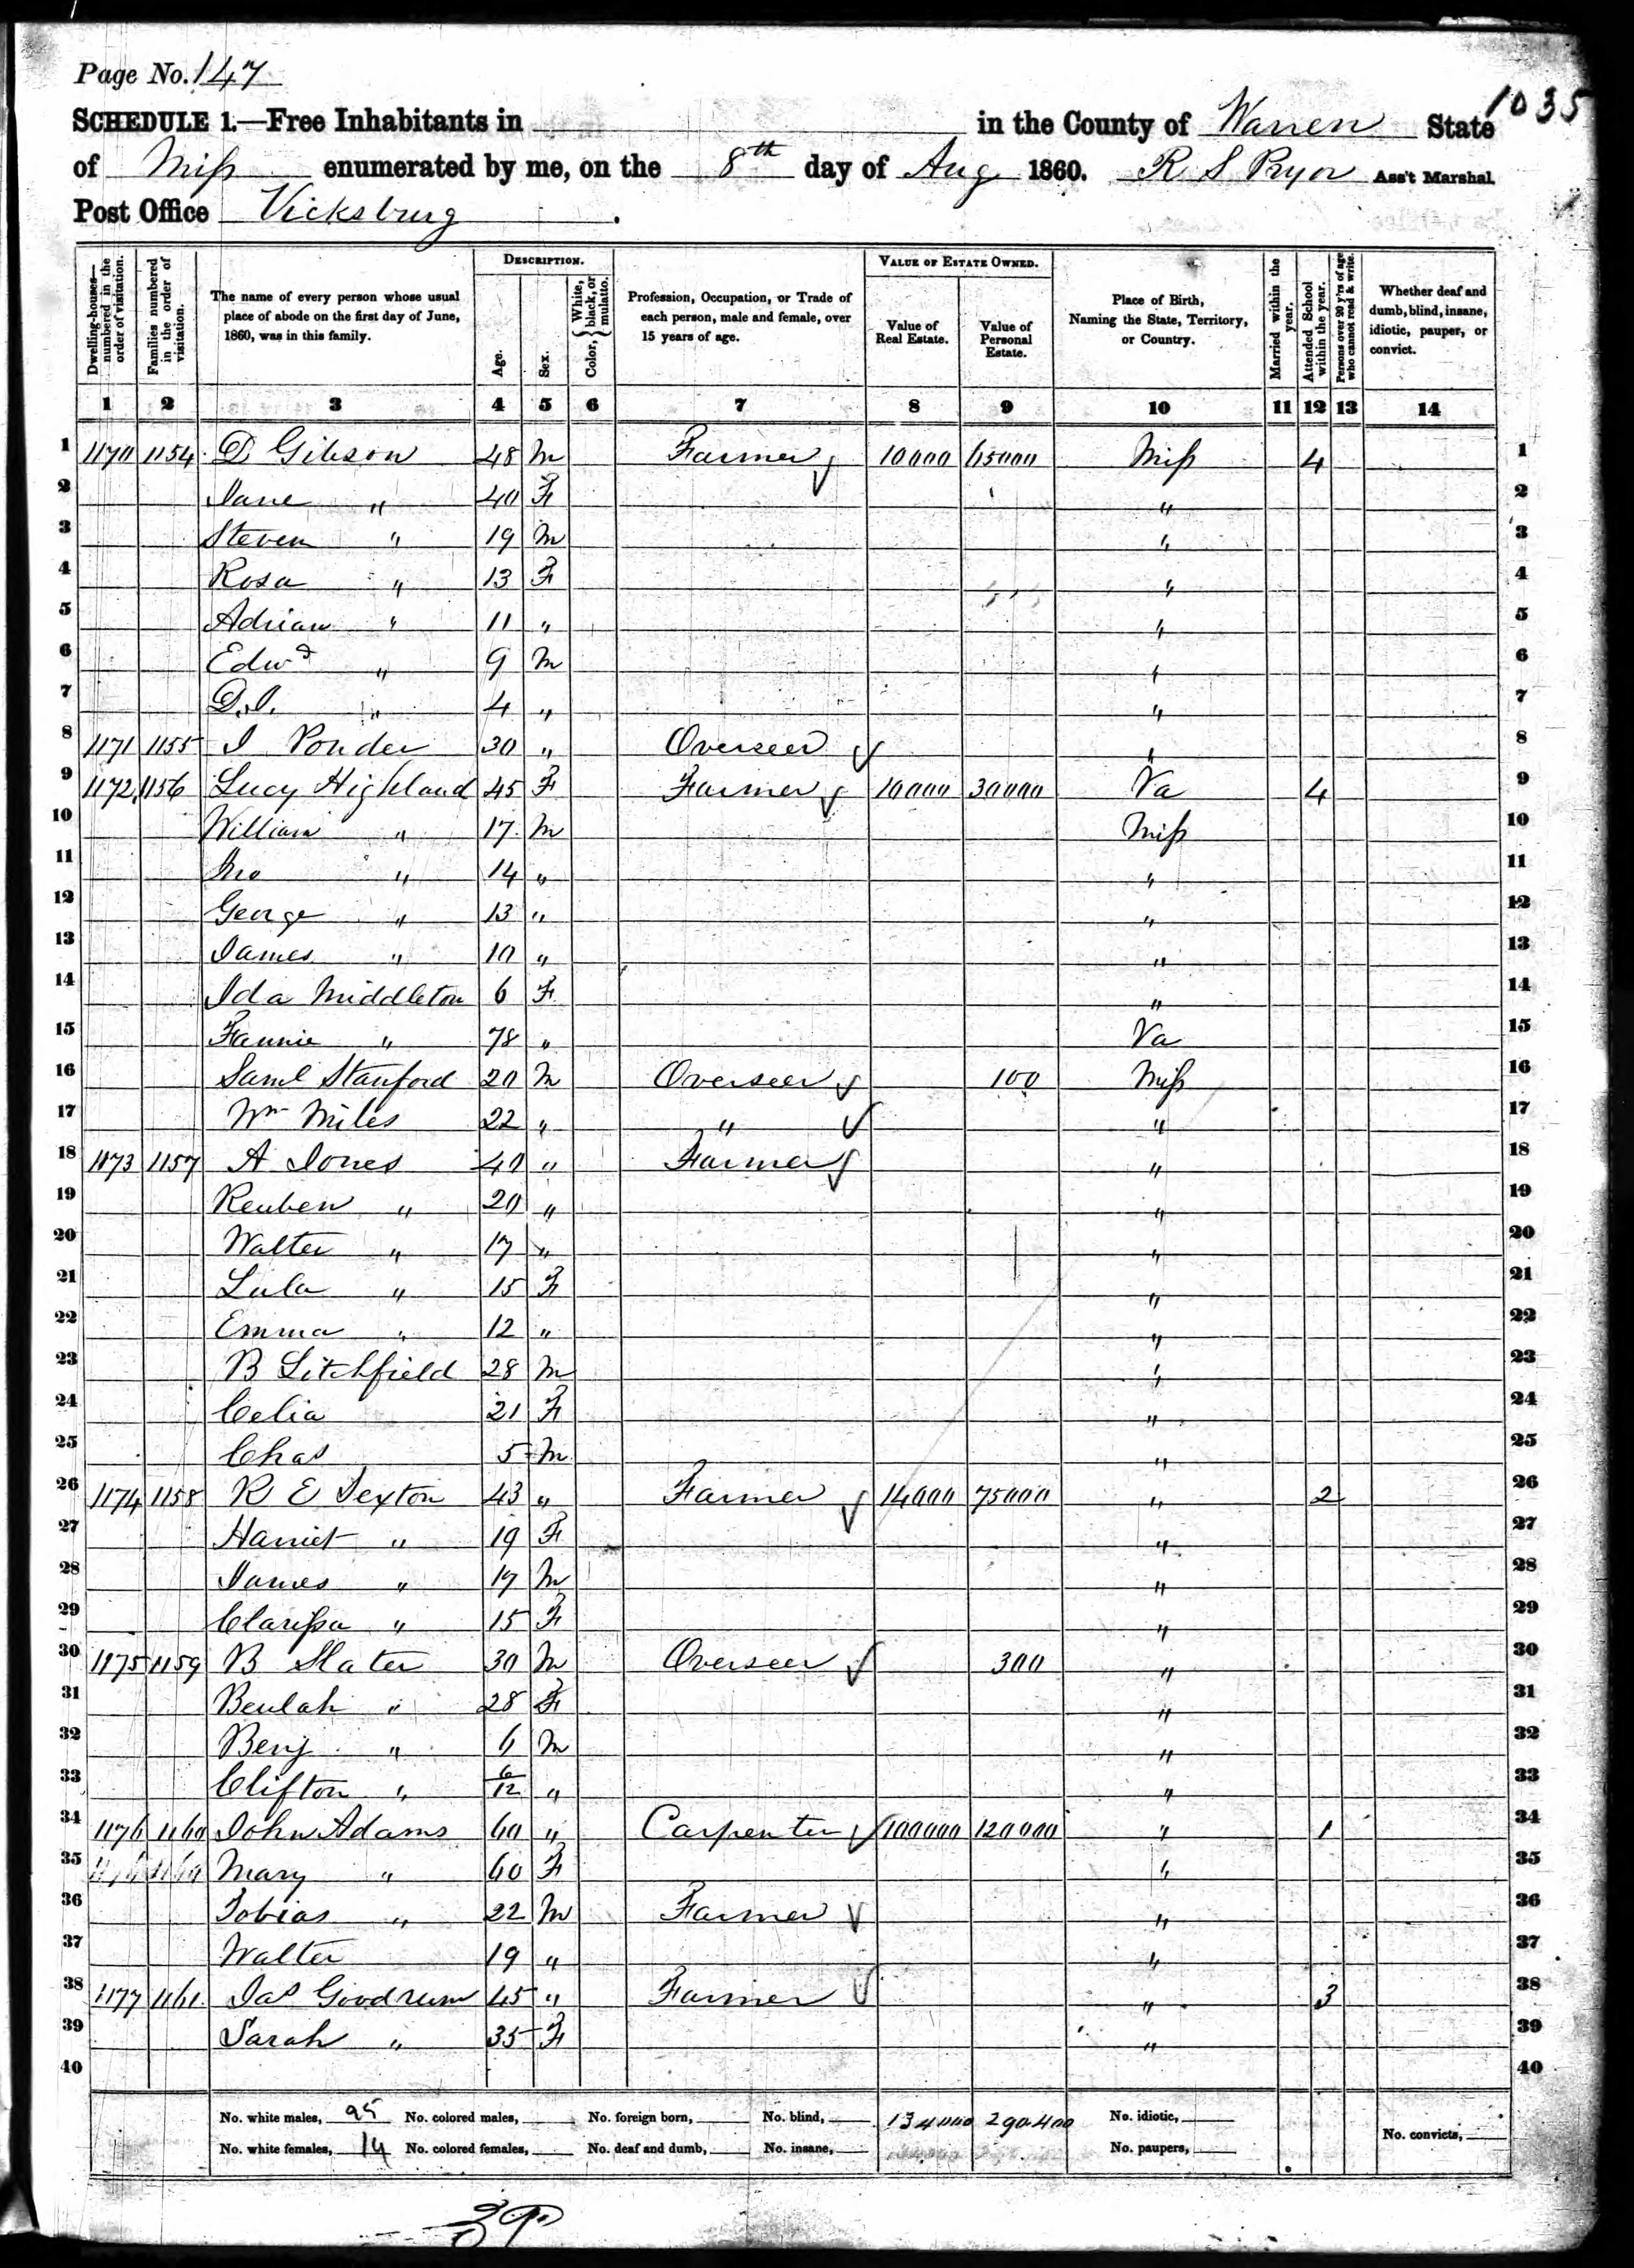 Page No. 147
1035
SCHEDULE 1.—Free Inhabitants in in the County of Warren State
of Miss enumerated by me, on the 8th day of Aug 1860. R S Pryor Ass't Marshal.
Post Office Vicksburg .
Dwelling-houses—numbered in the order of visitation.
Families numbered in the order of visitation.
The name of every person whose usual place of abode on the first day of June, 1860, was in this family.
DESCRIPTION.
Age.
Sex.
Color, { White, black, or mulatto.
Profession, Occupation, or Trade of each person, male and female, over 15 years of age.
VALUE OF ESTATE OWNED.
Value of Real Estate.
Value of Personal Estate.
Place of Birth, Naming the State, Territory, or Country.
Married within the year.
Attended School within the year.
Persons over 20 y'rs of age who cannot read & write.
Whether deaf and dumb, blind, insane, idiotic, pauper, or convict.
1 2 3 4 5 6 7 8 9 10 11 12 13 14
1 1170 1154 D Gibson 48 M Farmer 10000 65000 Miss 4 1
2 Jane " 40 F " 2
3 Steven " 19 M " 3
4 Rosa " 13 F " 4
5 Adrian " 11 " " 5
6 Edwd " 9 M " 6
7 D.J. " 4 " " 7
8 1171 1155 J Ponder 30 " Overseer " 8
9 1172 1156 Lucy Highland 45 F Farmer 10000 30000 Va 4 9
10 William " 17 M Miss 10
11 Jno " 14 " " 11
12 George " 13 " " 12
13 James " 10 " " 13
14 Ida Middleton 6 F " 14
15 Fannie " 78 " Va 15
16 Saml Stanford 20 M Overseer 100 Miss 16
17 Wm Miles 22 " " " 17
18 1173 1157 A Jones 40 " Farmer " 18
19 Reuben " 20 " " 19
20 Walter " 17 " " 20
21 Lula " 15 F " 21
22 Emma " 12 " " 22
23 B Litchfield 28 M " 23
24 Celia 21 F " 24
25 Chas 5 M " 25
26 1174 1158 R E Sexton 43 " Farmer 14000 75000 " 2 26
27 Harriet " 19 F " 27
28 James " 17 M " 28
29 Clarissa " 15 F " 29
30 1175 1159 B Slater 30 M Overseer 300 " 30
31 Beulah " 28 F " 31
32 Benj " 6 M " 32
33 Clifton " 6/12 " " 33
34 1176 1160 John Adams 60 " Carpenter 100000 120000 " 1 34
35 1176 1160 Mary " 60 F " 35
36 Tobias " 22 M Farmer " 36
37 Walter 19 " " 37
38 1177 1161 Jas Goodrum 45 " Farmer " 3 38
39 Sarah " 35 F " 39
40 40
No. white males, 25 No. colored males, No. foreign born, No. blind, 134000 290400 No. idiotic,
No. white females, 14 No. colored females, No. deaf and dumb, No. insane, No. paupers, No. convicts,
39